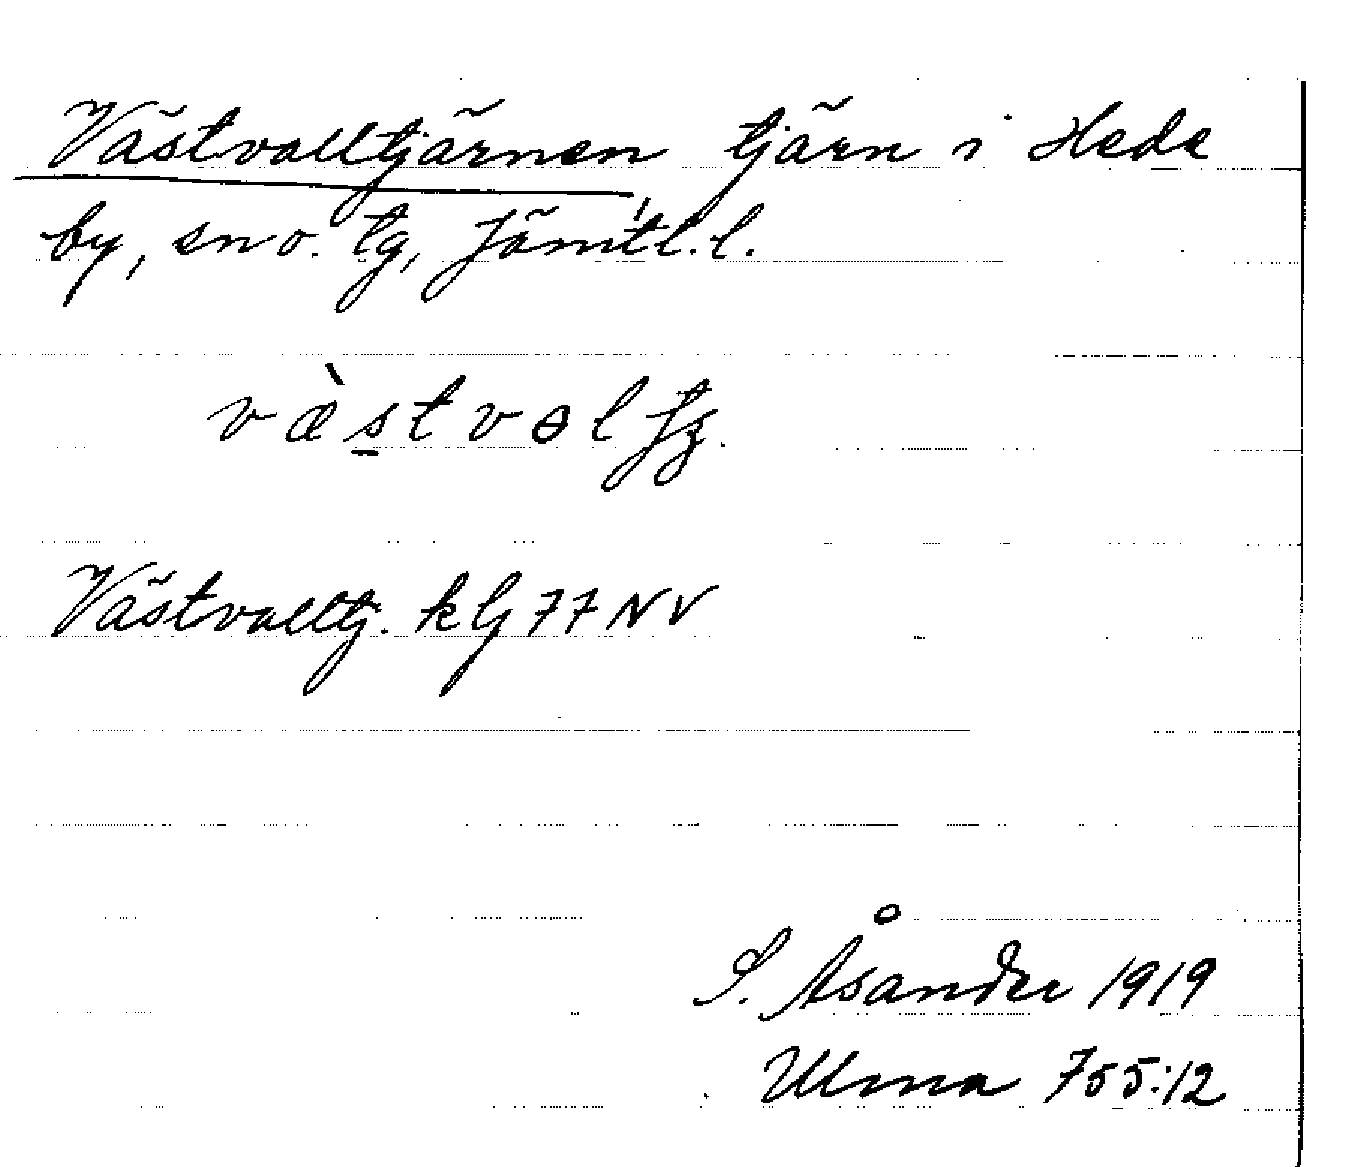 Västvalltjärnen, tjärn i Hede
by, sn o. tg, Jämtl. l.
Västvalltj. kbj 77 NV
S. Åsander 1919
Ulma 755:12